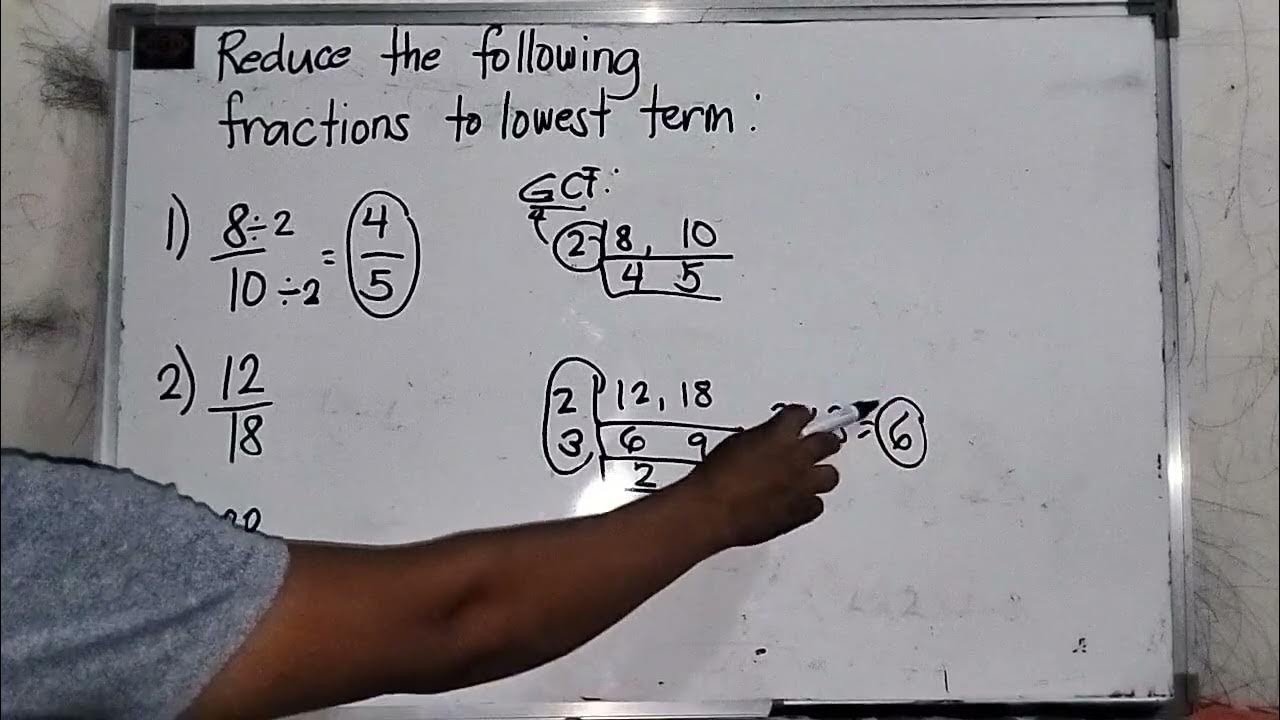 Reduce the following
fractions to lowest term:
GCF:
1) 8÷2 / 10÷2 = 4/5
2 8, 10
4 5
2) 12/18
2 12, 18
3 6 9
2
= 6